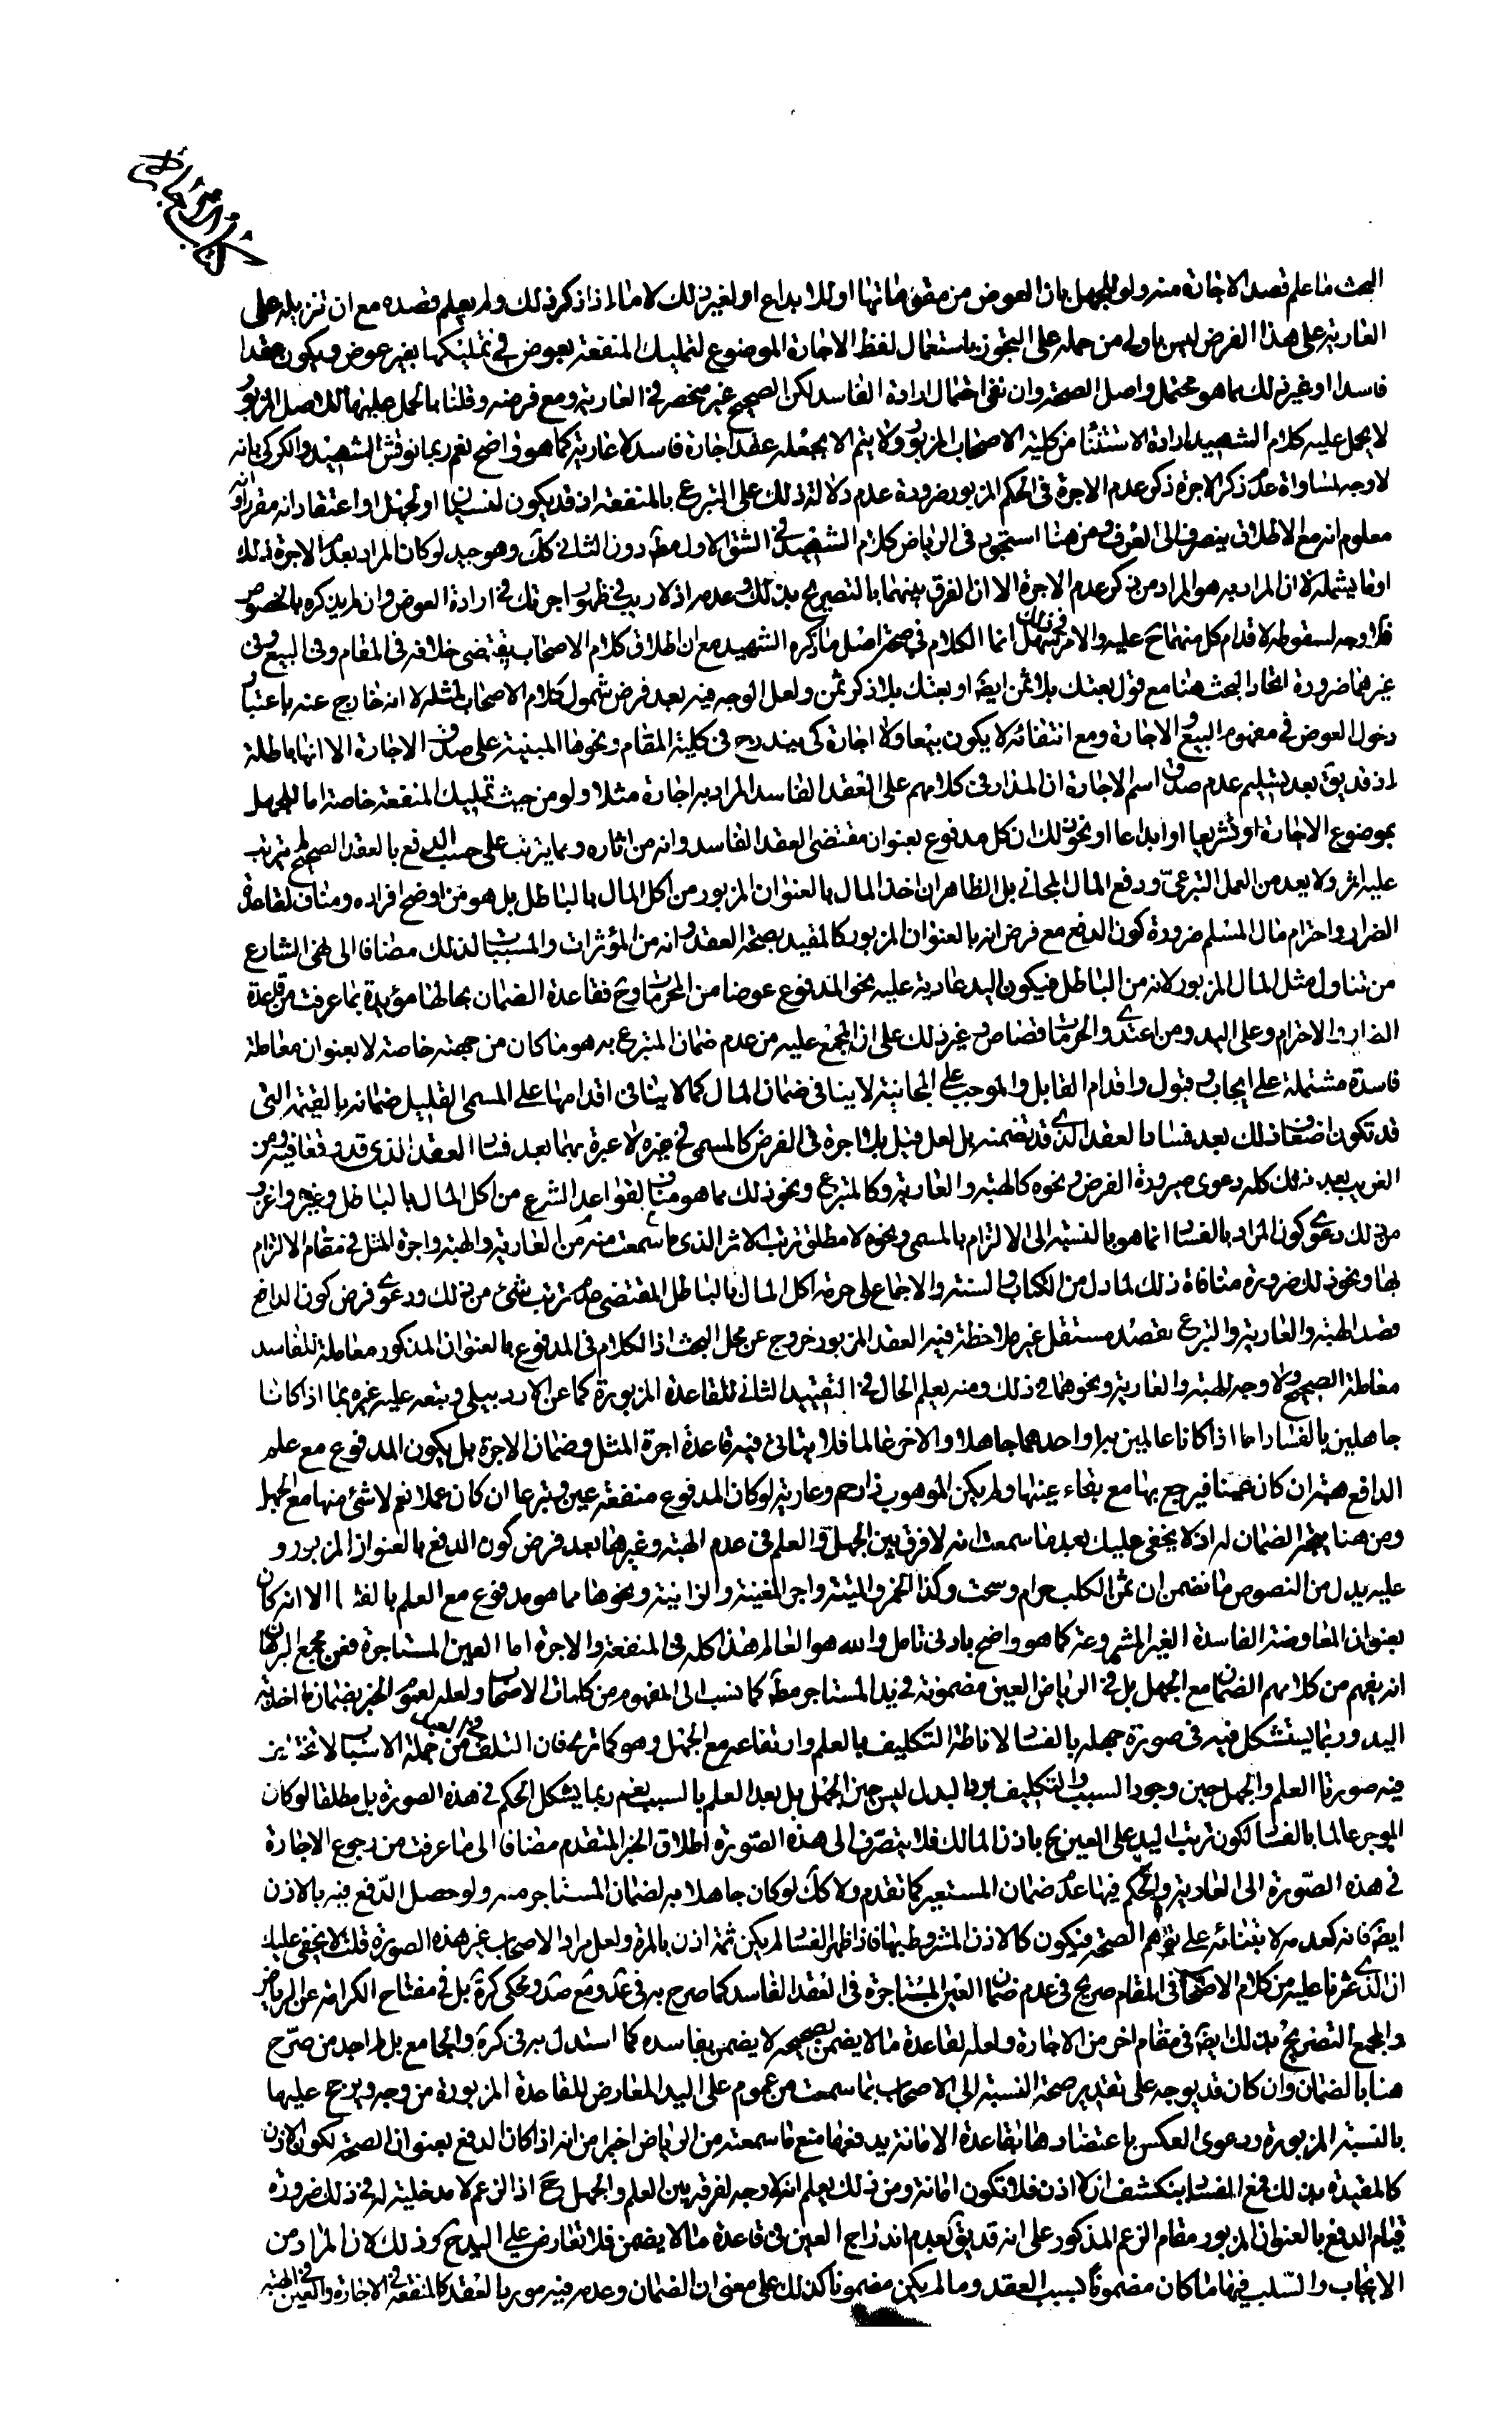 كتاب الاجارة
البحث ما علم قصد الاجارة منه ولو للجهل بان العوض من مقوماتها او للابداع او لغير ذلك لا ما اذا ذكر ذلك ولم يعلم قصده مع ان تنزيله على
العارية على هذا الفرض ليس باولى من حمله على التجوز باستعمال لفظ الاجارة الموضوع لتمليك المنفعة بعوض في تمليكها بغير عوض فيكون عقدا
فاسدا او غير ذلك مما هو محتمل واصل الصحة وان نفى احتمال ارادة الفاسد لكن الصحيح غير منحصر في العارية ومع فرضه وقلنا بالحمل عليها لذلك الاصل المزبور
لا يحمل عليه كلام الشهيد ارادة الاستثناء من كلية الاصحاب المزبور ولا يتم الا بجعله عقد اجارة فاسدة لا عارية كما هو واضح نعم ربما نوقش الشهيد والكركي بانه
لا وجه لمساواة عدم ذكر الاجرة ذكر عدم الاجرة في الحكم المزبور ضرورة عدم دلالة ذلك على التبرع بالمنفعة اذ قد يكون لنسيان او لجهل او اعتقاد انه مقرر او انه
معلوم انه مع الاطلاق ينصرف الى العرف ومن هنا استجود في الرياض كلام الشهيد في الشق الاول مط دون الثاني كك وهو جيد لو كان المراد بعدم الاجرة ذلك
او ما يشمله لا ان المراد به هو المراد من ذكر عدم الاجرة الا ان الفرق بينهما بالتصريح بذلك وعدمه اذ لا ريب في ظهور اجرتك في ارادة العوض وان لم يذكره بالخصوص
فلا وجه لسقوطه لاقدام كل منهما ح عليه والامر في ذلك سهل انما الكلام في صحة اصل ما ذكره الشهيد مع ان اطلاق كلام الاصحاب يقتضي خلافه في المقام وفي البيع وفي
غيرهما ضرورة اتحاد البحث هنا مع قول بعتك بلا ثمن ايضا او بعتك بلا ذكر ثمن ولعل الوجه فيه بعد فرض شمول كلام الاصحاب لمثله لا انه خارج عنه باعتبار
دخول العوض في مفهوم البيع والاجارة ومع انتفائه لا يكون بيعا ولا اجارة كي يندرج في كلية المقام ونحوها المبنية على صدق الاجارة الا انها باطلة
اذ قد يق بعد تسليم عدم صدق اسم الاجارة ان المدار في كلامهم على العقد الفاسد المراد به اجارة مثلا ولو من حيث تمليك المنفعة خاصة اما للجهل
بموضوع الاجارة او تشريعا او ابداعا او نحو ذلك ان كل مدفوع بعنوان مقتضى العقد الفاسد وانه من اثاره ومما يترتب على حسب الدفع بالعقد الصحيح لم يترتب
عليه اثر ولا يعد من العمل التبرعي ودفع المال المجاني بل الظاهر ان اخذ المال بالعنوان المزبور من اكل المال بالباطل بل هو من اوضح افراده ومناف لقاعدة
الضرار واحترام مال المسلم ضرورة كون الدفع مع فرض انه بالعنوان المزبور كالمقيد بصحة العقد وانه من المؤثرات والمسببات لذلك مضافا الى نهي الشارع
من تناول مثل المال المزبور لانه من الباطل فيكون اليد عادية عليه نحو المدفوع عوضا من المحرمات وح فقاعدة الضمان بحالها مؤيدة بما عرفت من قاعدة
الضرار والاحترام وعلى اليد ومن اعتدى والحرمات قصاص وغير ذلك على ان المجمع عليه من عدم ضمان المتبرع به هو ما كان من جهته خاصة لا بعنوان معاملة
فاسدة مشتملة على ايجاب وقبول واقدام القابل والموجب على المجانية لا ينافي ضمان المال كما لا ينافي اقدامها على المسمى القليل ضمانه بالقيمة التي
قد تكون اضعاف ذلك بعد فساد العقد الذي قد تضمنه بل لعل قبل بلا اجرة في الفرض كالمسمى في غيره لا عبرة بهما بعد فساد العقد الذي قد وقعا فيه ومن
الغريب بعد ذلك كله دعوى صيرورة الفرض ونحوه كالهبة والعارية وكالمتبرع ونحو ذلك مما هو مناف لقواعد الشرع من اكل المال بالباطل وغيره واغرب
من ذلك دعوى كون المراد بالفساد انما هو بالنسبة الى الالتزام بالمسمى ونحوه لا مطلق ترتب الاثر الذي ما سمعت منه من العارية والهبة واجرة المثل في مقام الالتزام
بها ونحو ذلك ضرورة منافاة ذلك لما دل من الكتاب والسنة والاجماع على حرمة اكل المال بالباطل المقتضي عدم ترتب شئ من ذلك ودعوى فرض كون الدافع
قصد الهبة والعارية والتبرع بقصد مستقل غير ملاحظة فيه العقد المزبور خروج عن محل البحث اذ الكلام في المدفوع بالعنوان المذكور معاملة للفاسد
معاملة الصحيح ولا وجه للهبة والعارية ونحوهما في ذلك ومنه يعلم الحال في التقييد الثاني للقاعدة المزبورة كما عن الاردبيلي وتبعه عليه غيره بما اذا كانا
جاهلين بالفساد اما اذا كانا عالمين به او احدهما جاهلا والاخر عالما فلا يتاتى فيه قاعدة اجرة المثل وضمان الاجرة بل يكون المدفوع مع علم
الدافع هبة ان كان عينا فيرجع بها مع بقاء عينها ولم يكن الموهوب ذا رحم وعارية لو كان المدفوع منفعة عين وتبرعا ان كان عملا نعم لا شئ منها مع الجهل
ومن هنا يتجه الضمان له اذ لا يخفى عليك بعد ما سمعت انه لا فرق بين الجهل والعلم في عدم الهبة وغيرها بعد فرض كون الدفع بالعنوان المزبور و
عليه يدل من النصوص ما تضمن ان ثمن الكلب حرام وسحت وكذا الخمر والميتة واجر المغنية والزانية ونحوها مما هو مدفوع مع العلم بالفساد الا انه كان
بعنوان المعاوضة الفاسدة الغير المشروعة كما هو واضح بادنى تامل والله هو العالم هذا كله في المنفعة والاجرة اما العين المستاجرة فعن مجمع البرهان
انه يفهم من كلامهم الضمان مع الجهل بل في الرياض العين مضمونة في يد المستاجر مط كما نسب الى المفهوم من كلمات الاصحاب ولعله لعموم الخبر بضمان ما اخذته
اليد وربما يستشكل فيه في صورة جهله بالفساد لاناطة التكليف بالعلم وارتفاعه مع الجهل وهو كما ترى فان التلف في يد من جملة الاسباب لا تختلف
فيه صورتا العلم والجهل حين وجود السبب والتكليف برد البدل ليس حين الجهل بل بعد العلم بالسبب نعم ربما يشكل الحكم في هذه الصورة بل مطلقا لو كان
الموجر عالما بالفساد لكون ترتب اليد على العين ح باذن المالك فلا ينصرف الى هذه الصورة اطلاق الخبر المتقدم مضافا الى ما عرفت من رجوع الاجارة
في هذه الصورة الى العارية والحكم فيها عدم ضمان المستعير كما تقدم ولا كك لو كان جاهلا به لضمان المستاجر منه ولو حصل الدفع فيه بالاذن
ايضا فانه كعدمه لابتنائه على توهم الصحة فيكون كالاذن المشروط بها فاذا ظهر الفساد لم يكن ثمة اذن بالمرة ولعل مراد الاصحاب غير هذه الصورة قلت لا يخفى عليك
ان الذي عثرنا عليه من كلام الاصحاب في المقام صريح في عدم ضمان العين المستاجرة في العقد الفاسد كما صرح به في عد ومع صد ومحكي كرة بل في مفتاح الكرامة عن الرياض
والمجمع التصريح بذلك ايضا في مقام اخر من الاجارة ولعله لقاعدة ما لا يضمن بصحيحه لا يضمن بفاسده كما استدل به في كرة والجامع بل لم اجد من صرح
هنا بالضمان وان كان قد يوجه على تقدير صحة النسبة الى الاصحاب بما سمعت من عموم على اليد المعارض للقاعدة المزبورة من وجه ويرجح عليها
بالنسبة المزبورة ودعوى العكس باعتضادها بقاعدة الامانة يدفعها منع ما سمعته من الرياض اخيرا من انه اذا كان الدفع بعنوان الصحة لكون الاذن
كالمقيدة بذلك فمع الفساد ينكشف ان لا اذن فلا تكون امانة ومن ذلك يعلم انه لا وجه لفرقه بين العلم والجهل ح اذ الزعم لا مدخلية له في ذلك ضرورة
قيام الدفع بالعنوان المزبور مقام الزعم المذكور على انه قد يق بعدم اندراج العين في قاعدة ما لا يضمن فلا تعارض على اليد ح وذلك لان المراد من
الايجاب والسلب فيها ما كان مضمونا بسبب العقد وما لم يكن مضمونا كذلك على معنى ان الضمان وعدمه فيه مورد العقد كالمنفعة في الاجارة والعين في الهبة